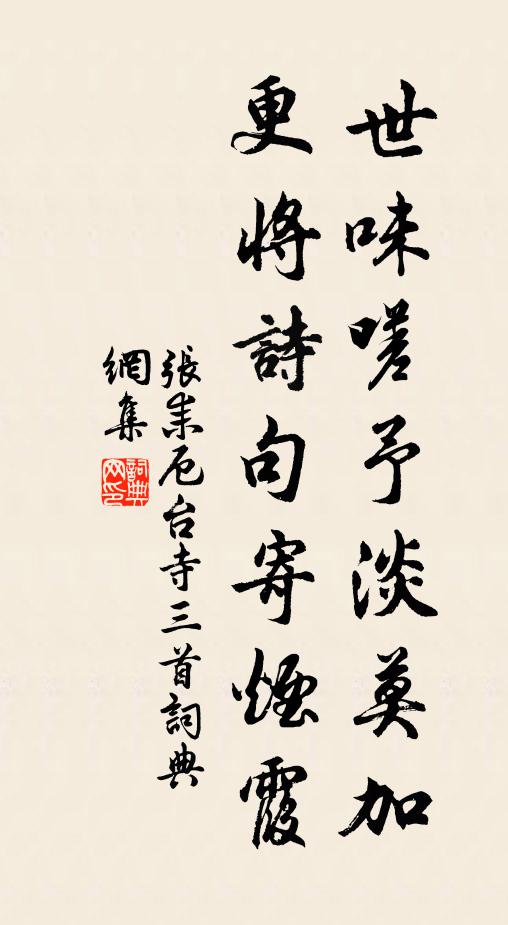 世味嗟予淡莫加
更將詩句寄煙霞
張耒厄台寺三首詞典
網集
詞典網印